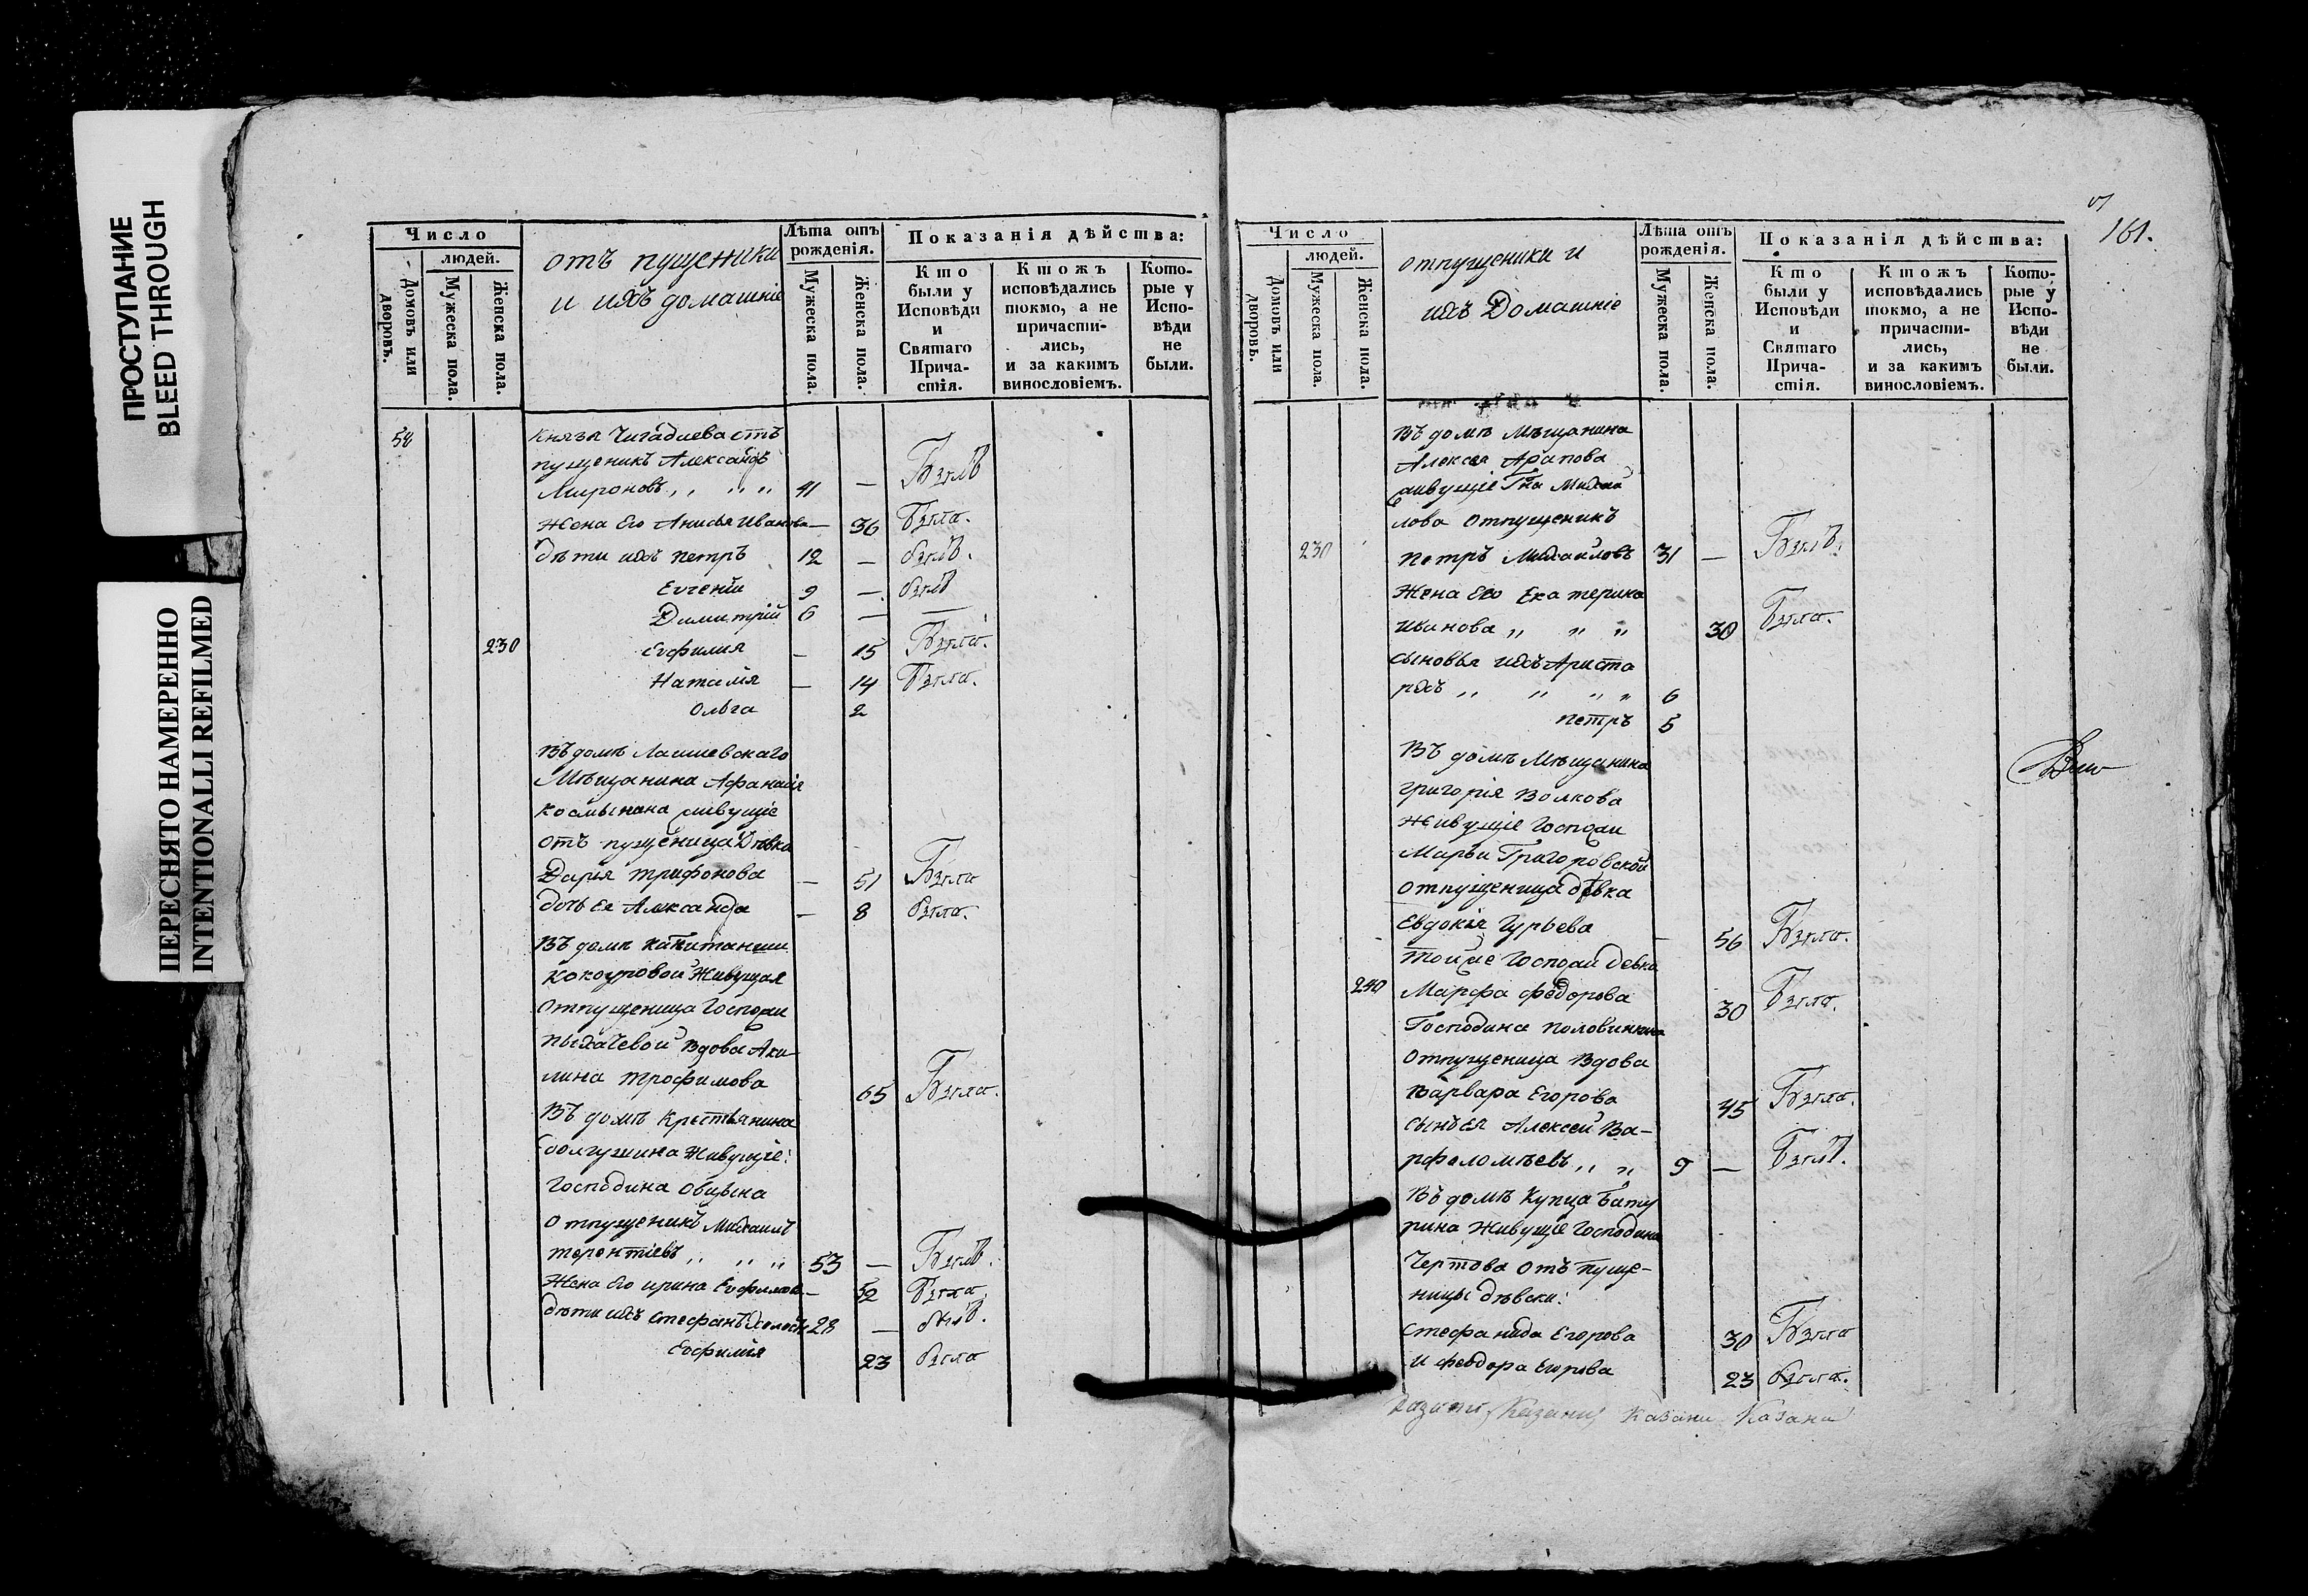 ПРОСТУПАНИЕ
BLEED THROUGH
ПЕРЕСНЯТО НАМЕРЕННО
INTENTIONALLI REFILMED
Число
людей.
Домовъ или дворовъ.
Мужеска пола.
Женска пола.
отъ пущеники
и ихъ домашніе
Лѣта отъ рожденія.
Мужеска пола.
Женска пола.
Показанія дѣйства:
Кто были у Исповѣди и Святаго Прича-стія.
Ктожъ исповѣдались токмо, а не причасти-лись, и за какимъ винословіемъ.
Кото-рые у Испо-вѣди не были.
58 Князя Чигадаева отъ
пущеникъ Александръ
Мироновъ „ „ „ 41 — Былъ
Жена Его Анисья Иванова — 36 Была.
дѣти ихъ Петръ 12 — былъ.
Евгеній 9 — былъ
Димитрій 6 — —
230 Евфимія — 15 Была.
Наталія — 14 Была.
Ольга 2
Въ домѣ Лаишевскаго
Мѣщанина Афанасія
живущіе
отъ пущеница Дѣвка
Дарья Трифонова — 51 Была
дочь Ея Александра — 8 была.
Въ домѣ Капитанши
Кокоуровой Живущая
Отпущеница Госпожи
Пыхачевой Вдова Аку-
лина Трофимова 65 Была.
Въ домѣ Крестьянина
Живущіе:
Господина
Отпущеникъ Михаилъ
Терентіевъ „ „ „ 53 — Былъ.
Жена Его Ирина — 52 Была.
дѣти ихъ Стефанъ Холостъ 28 — былъ.
Евфимія 23 была
161.
Число
людей.
Домовъ или дворовъ.
Мужеска пола.
Женска пола.
отпущеники и
ихъ Домашніе
Лѣта отъ рожденія.
Мужеска пола.
Женска пола.
Показанія дѣйства:
Кто были у Исповѣди и Святаго Прича-стія.
Ктожъ исповѣдались токмо, а не причасти-лись, и за какимъ винословіемъ.
Кото-рые у Испо-вѣди не были.
Въ домѣ Мѣщанина
Алексея Арапова
живущіе Гна Михай
лова отпущеникъ
230 Петръ Михайловъ 31 — Былъ.
Жена Его Екатерина
Иванова „ „ „ 30 Была.
сыновья ихъ Ариста
рхъ „ „ „ „ 6
Петръ 5
Въ домѣ Мѣщанина
Григорія Волкова
Живущіе Госпожи
Марьи Григоровской
отпущеница дѣвка
Евдокія Гурьева — 56 Была.
Тойже Госпожи девка
240 Марфа Федорова 30 Была.
Господина Половинкина
Отпущеница Вдова
Варвара Егорова 45 Была.
Сынъ Ея Алексей Ва-
рфоломѣевъ „ „ 9 — Былъ.
Въ домѣ Купца Бату
рина Живущіе Господина
Чертова отъ пуще-
ницы дѣвки:
Стефанида Егорова 30 Была
И Феодора Егорова 23 была.
Казани Казани Казани